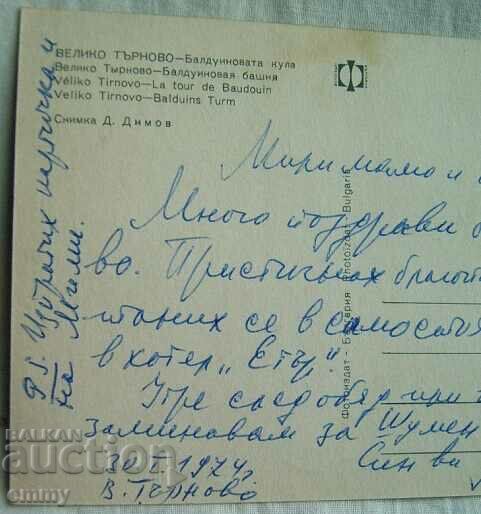 ВЕЛИКО ТЪРНОВО—Балдуиновата кула
Велико Тырново—Балдуиновая башня
Véliko Tirnovo—La tour de Baudouin
Veliko Tirnovo—Balduins Turm
Снимка Д. Димов
Фотоиздат - България Photoizdat - Bulgaria
Мили мамо и
Много поздрави
во. Пристигнах
се в самостоя
в хотел „Етър".
Утре следобяд при
заминавам за Шумен
Син ви
1974,
В. Търново
P.S. Изпратих картичка и
на
БАЛКАН
auction
emmy